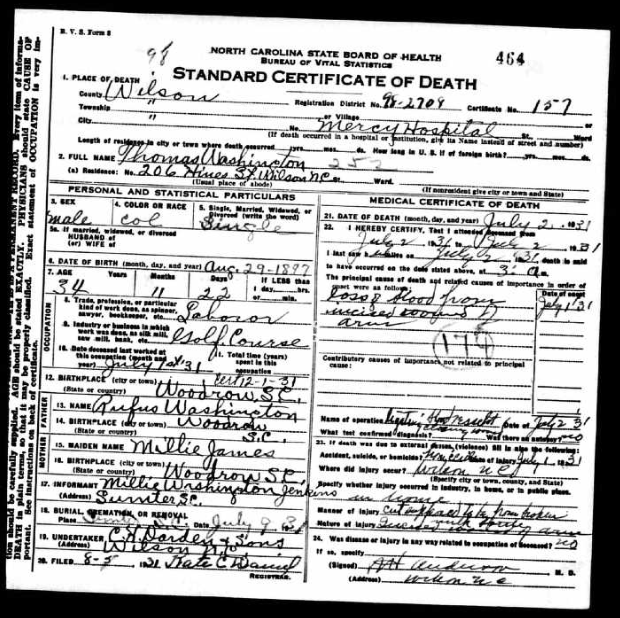 B. V. S. Form 8
98
NORTH CAROLINA STATE BOARD OF HEALTH
BUREAU OF VITAL STATISTICS
464
STANDARD CERTIFICATE OF DEATH
1. PLACE OF DEATH
County Wilson Registration District No. 98-2709 Certificate No. 157
Township " or Village or
City " Mercy Hospital St. Ward
(If death occurred in a hospital or institution, give its Name instead of street and number)
Length of residence in city or town where death occurred yrs. mos. ds. How long in U. S. if of foreign birth? yrs. mos. ds.
2. FULL NAME Thomas Washington 252
(a) Residence: No. 206 Hines St. Wilson NC or Ward.
(Usual place of abode) (If nonresident give city or town and State)
PERSONAL AND STATISTICAL PARTICULARS
3. SEX
male
4. COLOR OR RACE
col
5. Single, Married, Widowed, or Divorced (write the word)
Single
5a. If married, widowed, or divorced
HUSBAND of
(or) WIFE of
6. DATE OF BIRTH (month, day, and year) Aug. 29-1897
7. AGE Years Months Days If LESS than
34 11 22
8. Trade, profession, or particular kind of work done, as spinner, sawyer, bookkeeper, etc. Laboror
9. Industry or business in which work was done, as silk mill, saw mill, bank, etc. Golf Course
10. Date deceased last worked at this occupation (month and year) July 1st 31
11. Total time (years) spent in this occupation
12. BIRTHPLACE (city or town) Woodrow, S.C.
(State or country)
FATHER
13. NAME Rufus Washington
14. BIRTHPLACE (city or town) Woodrow
(State or country) S.C.
MOTHER
15. MAIDEN NAME Millie James
16. BIRTHPLACE (city or town) Woodrow S.C.
(State or country)
17. INFORMANT Millie Washington Jenkins
(Address) Sumter S.C.
18. BURIAL, CREMATION, OR REMOVAL
Place S.C. Date July 9 31
19. UNDERTAKER C.H. Darden & Sons
(Address) Wilson N.C.
20. FILED 8-5 1931 Kate C. Daniel
REGISTRAR.
MEDICAL CERTIFICATE OF DEATH
21. DATE OF DEATH (month, day, and year) July 2 1931
22. I HEREBY CERTIFY, That I attended deceased from
July 2 1931 to July 2 1931
I last saw h alive on July 2 1931 death is said
to have occurred on the date stated above, at 3 a m.
The principal cause of death and related causes of importance in order of onset were as follows: Date of onset
loss of blood from July 1 31
incised wounds of
arm
174
Contributory causes of importance not related to principal cause:
Name of operation Date of July 2 31
What test confirmed diagnosis? Was there an autopsy? no
23. If death was due to external causes, (violence) fill in also the following:
Accident, suicide, or homicide? Homicide Date of injury July 1, 1931
Where did injury occur? Wilson N C
(Specify city or town, county, and State)
Specify whether injury occurred in industry, in home, or in public place.
in home
Manner of injury cut supposed to be from broken
Nature of injury
24. Was disease or injury in any way related to occupation of deceased? no
If so, specify
(Signed) M. D.
(Address) Wilson N C